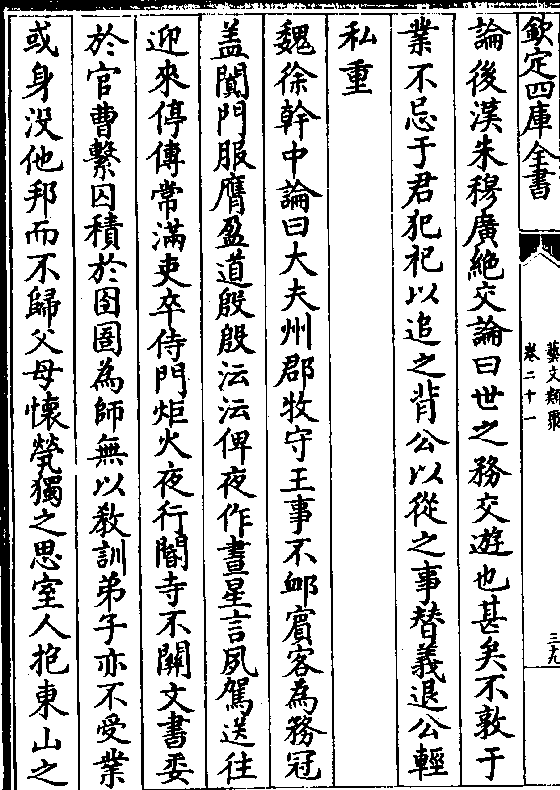 欽定四庫全書
藝文類聚
卷二十一
三十九
論後漢朱穆廣絶交論曰世之務交遊也甚矣不敦于
業不忌于君犯祀以追之背公以從之事替義退公輕
私重
魏徐幹中論曰大夫州郡牧守王事不䘏賓客為務冠
盖闐門服膺盈道殷殷沄沄俾夜作晝星言夙駕送往
迎來停傳常滿吏卒侍門炬火夜行閽寺不關文書委
於官曹繫囚積於囹圄為師無以教訓弟子亦不受業
或身没他邦而不歸父母懷煢獨之思室人抱東山之